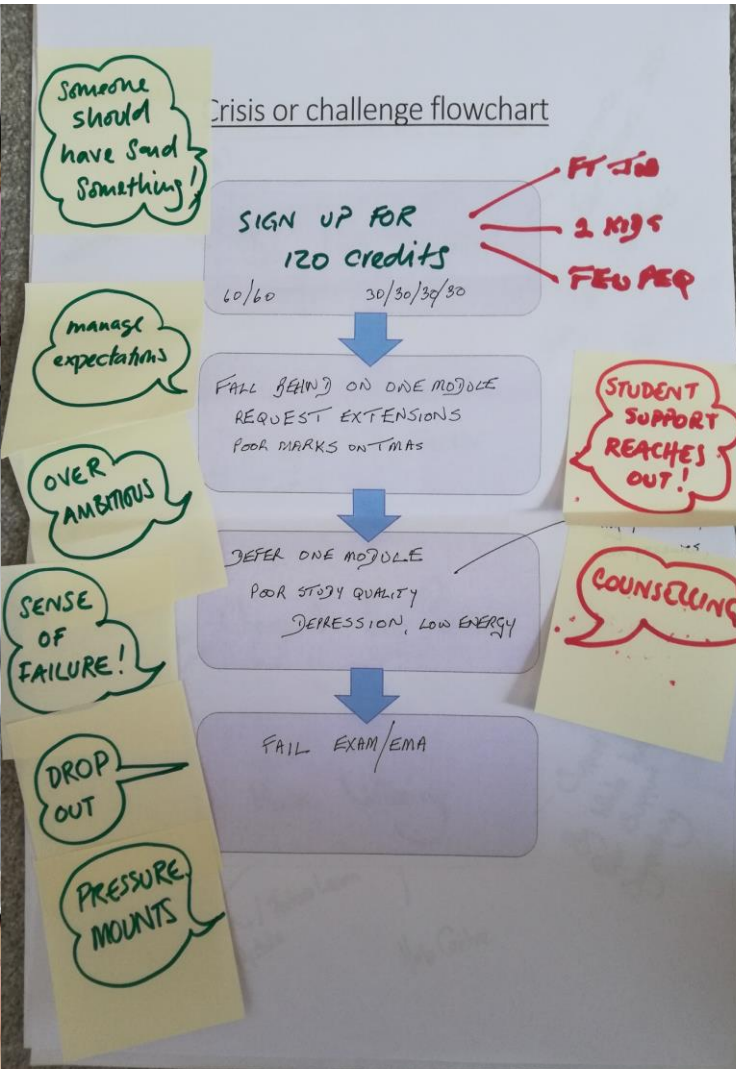 Someone
should
have said
something!
Crisis or challenge flowchart
SIGN UP FOR
120 credits
60/60 30/30/30/30
FT JOB
2 KIDS
FEW PEQ
manage
expectations
FALL BEHIND ON ONE MODULE
REQUEST EXTENSIONS
POOR MARKS ON TMAS
STUDENT
SUPPORT
REACHES
OUT!
OVER
AMBITIOUS
DEFER ONE MODULE
POOR STUDY QUALITY
DEPRESSION, LOW ENERGY
COUNSELLING
SENSE
OF
FAILURE!
FAIL EXAM/EMA
DROP
OUT
PRESSURE
MOUNTS